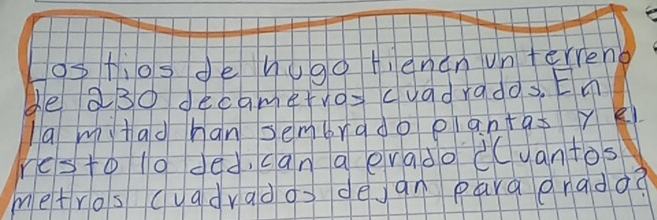 Los tios de hugo tienen un terreno
de 230 decametros cuadrados. En
la mitad han sembrado plantas y el
resto lo dedican a prado ¿Cuantos
metros cuadrados dejan para prado?